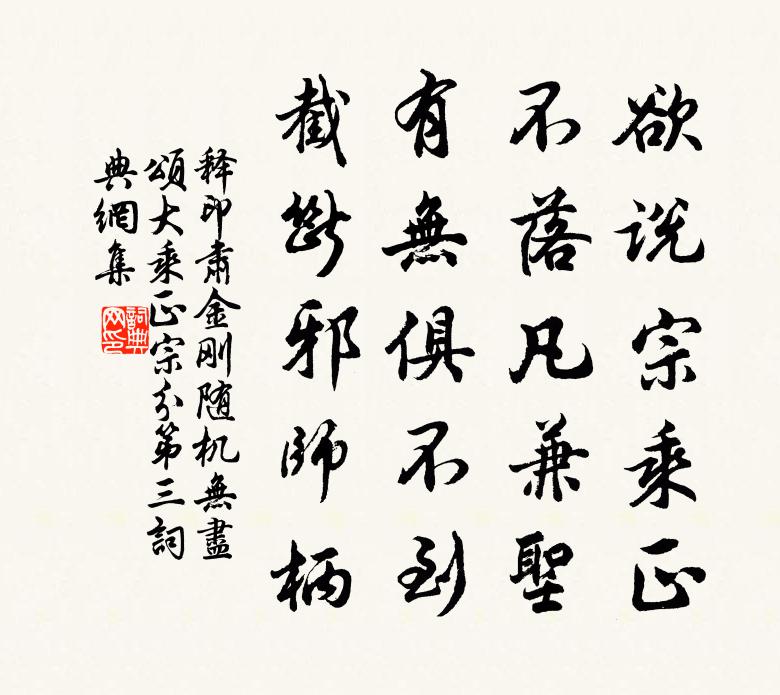 欲説宗乘正
不落凡兼聖
有無俱不到
截斷邪師柄
释印肃金刚随机無盡
頌大乘正宗分第三詞
典網集
詞典
网印